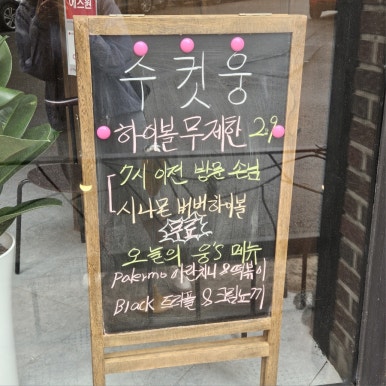 에스원
수컷웅
하이볼 무제한 2.9
7시 이전 방문 손님
시나몬 버버하이볼
쿠폰
오늘의 웅's 메뉴
Palermo 아란치니 & 떡볶이
Black 트러플 & 크림뇨끼